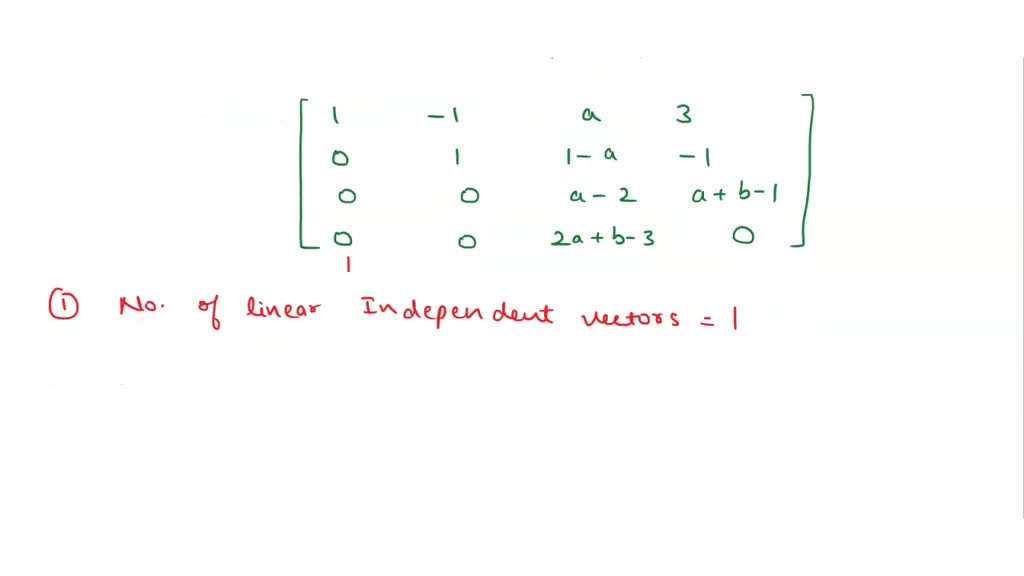 1 -1 a 3
0 1 1-a -1
0 0 a-2 a+b-1
0 0 2a+b-3 0
1
① No. of linear Independent vectors = 1